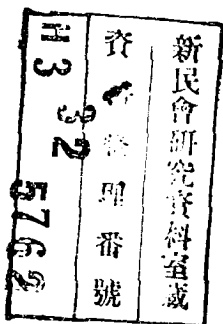 新民會研究資料室藏
資料整理番號
H3
32
5762